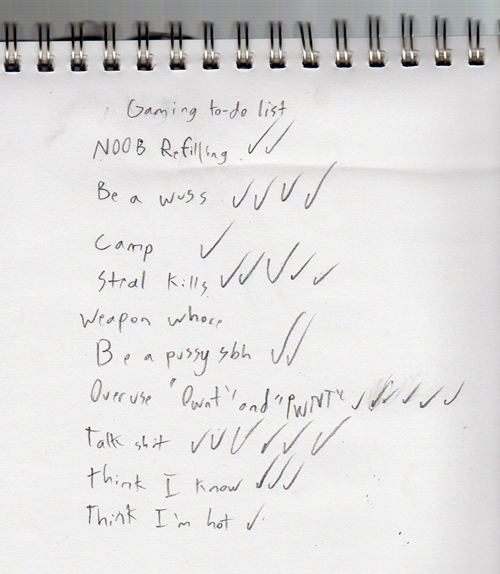 Gaming to-do list
NOOB Refilling ✓✓
Be a wuss ✓✓✓✓
Camp ✓
Steal kills ✓✓✓✓✓
Weapon whore
Be a pussy sbh ✓✓
Overuse "Ownt" and "PWNT" ✓✓✓✓✓✓
Talk shit ✓✓✓✓✓✓
think I know ✓✓✓
Think I'm hot ✓